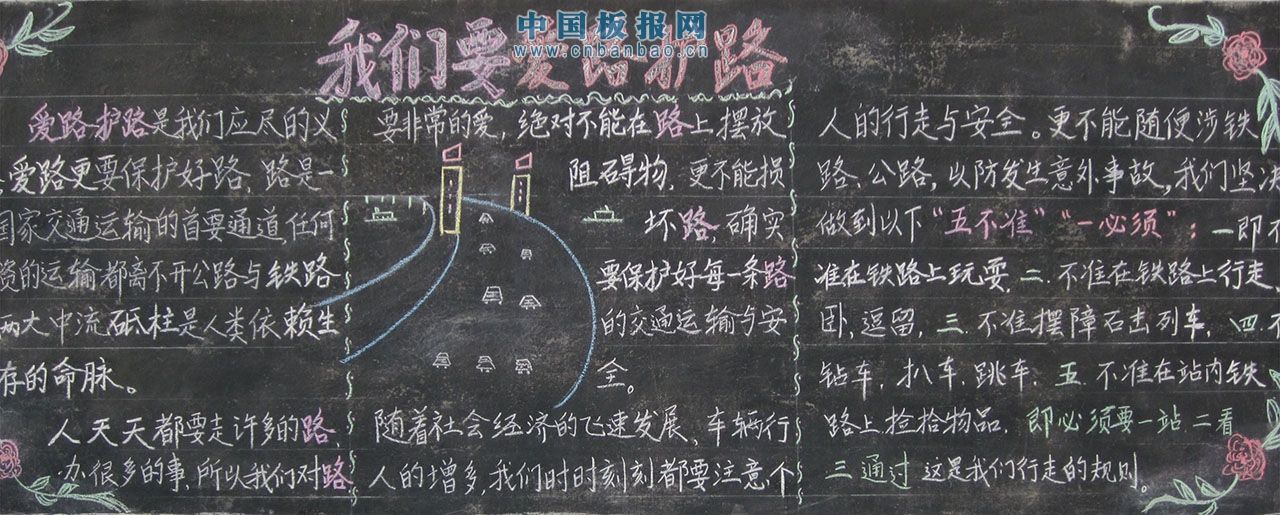 中国板报网
www.cnbanbao.cn
我们要爱路护路
爱路护路是我们应尽的义
爱路更要保护好路，路是一
国家交通运输的首要通道，任何
资的运输都离不开公路与铁路
两大中流砥柱是人类依赖生
存的命脉。
人天天都要走许多的路，
办很多的事，所以我们对路
要非常的爱，绝对不能在路上摆放
阻碍物，更不能损
坏路，确实
要保护好每一条路
的交通运输与安
全。
随着社会经济的飞速发展，车辆行
人的增多，我们时时刻刻都要注意个
人的行走与安全。更不能随便涉铁
路、公路，以防发生意外事故，我们坚决
做到以下“五不准”“一必须”：一即不
准在铁路上玩耍，二．不准在铁路上行走，
卧，逗留，三．不准摆障石击列车，四不
钻车，扒车．跳车．五．不准在站内铁
路上捡拾物品，即必须要一站二看
三通过 这是我们行走的规则。